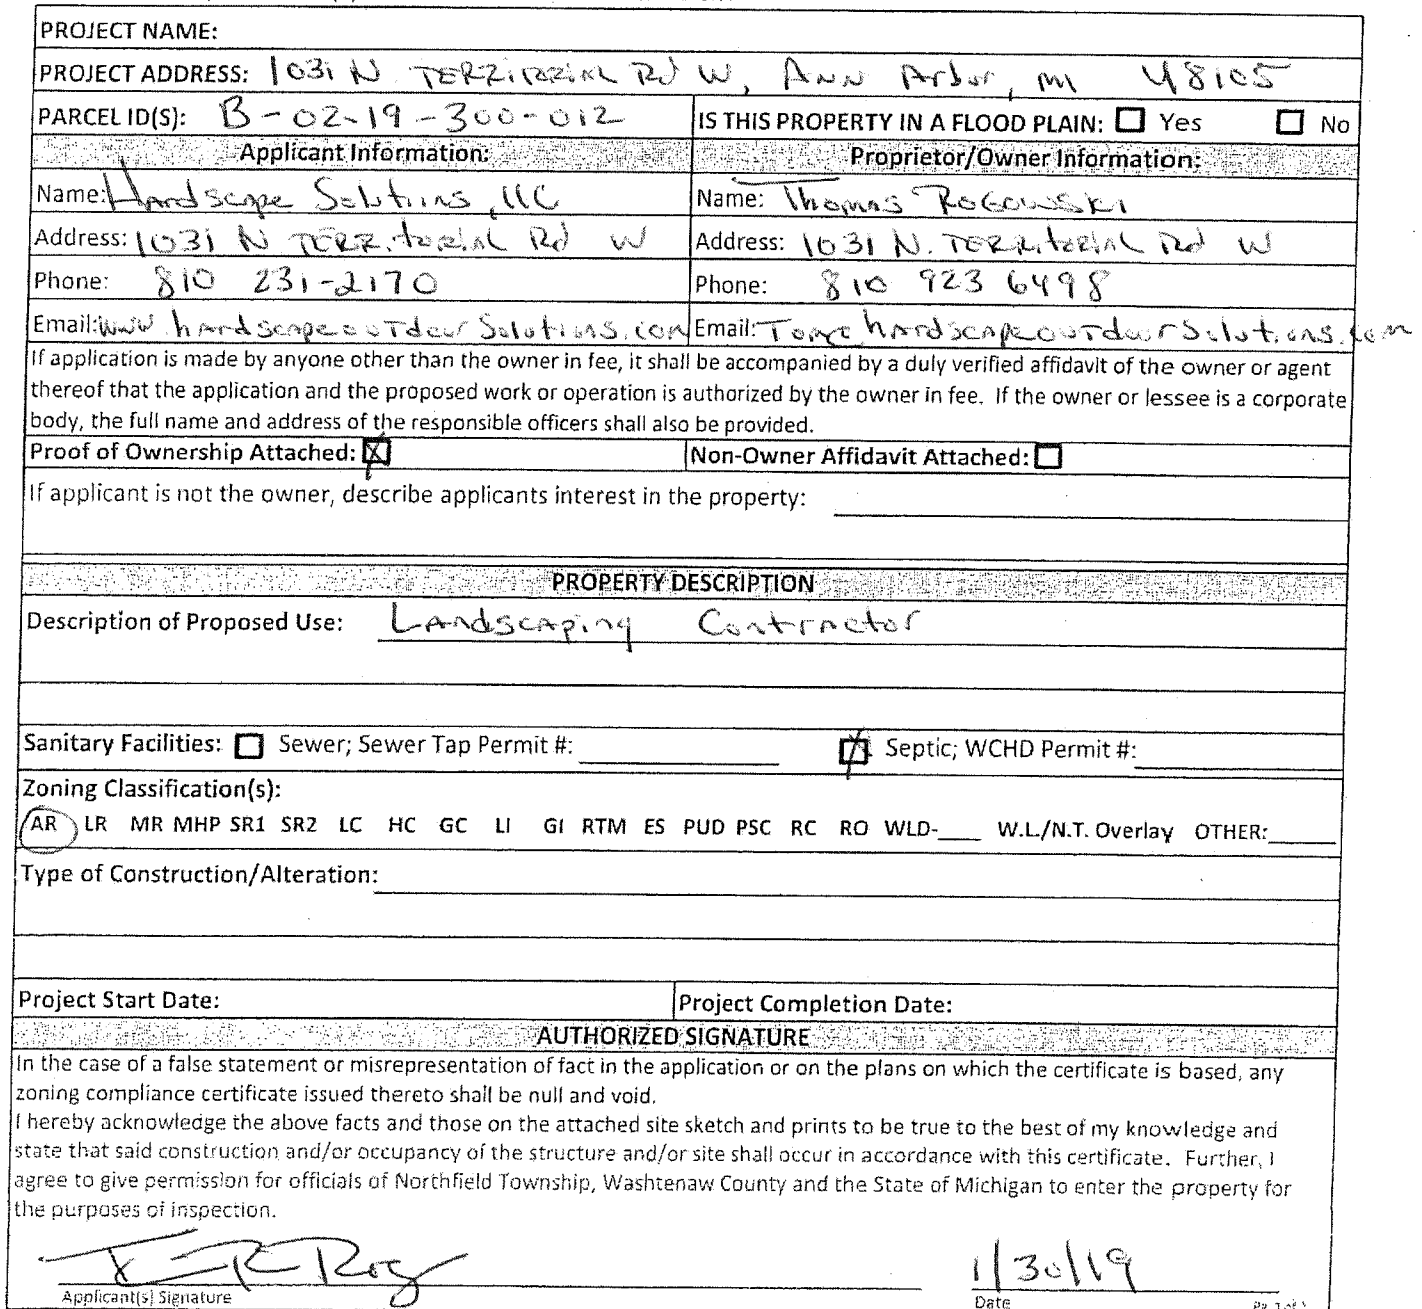 PROJECT NAME:
PROJECT ADDRESS: 1031 N. TERRITORIAL Rd W, Ann Arbor, MI 48105
PARCEL ID(S): B-02-19-300-012 IS THIS PROPERTY IN A FLOOD PLAIN: ☐ Yes ☐ No
Applicant Information: Proprietor/Owner Information:
Name: Hardscape Solutions, LLC Name: Thomas Rogowski
Address: 1031 N TERRitorial Rd W Address: 1031 N. TERRitorial Rd W
Phone: 810 231-2170 Phone: 810 923 6498
Email: www.hardscapeoutdoorSolutions.com Email: Tom@hardscapeoutdoorSolutions.com
If application is made by anyone other than the owner in fee, it shall be accompanied by a duly verified affidavit of the owner or agent
thereof that the application and the proposed work or operation is authorized by the owner in fee. If the owner or lessee is a corporate
body, the full name and address of the responsible officers shall also be provided.
Proof of Ownership Attached: ☒ Non-Owner Affidavit Attached: ☐
If applicant is not the owner, describe applicants interest in the property:
PROPERTY DESCRIPTION
Description of Proposed Use: Landscaping Contractor
Sanitary Facilities: ☐ Sewer; Sewer Tap Permit #: ☒ Septic; WCHD Permit #:
Zoning Classification(s):
AR LR MR MHP SR1 SR2 LC HC GC LI GI RTM ES PUD PSC RC RO WLD-____ W.L./N.T. Overlay OTHER:_____
Type of Construction/Alteration:
Project Start Date: Project Completion Date:
AUTHORIZED SIGNATURE
In the case of a false statement or misrepresentation of fact in the application or on the plans on which the certificate is based, any
zoning compliance certificate issued thereto shall be null and void.
I hereby acknowledge the above facts and those on the attached site sketch and prints to be true to the best of my knowledge and
state that said construction and/or occupancy of the structure and/or site shall occur in accordance with this certificate. Further, I
agree to give permission for officials of Northfield Township, Washtenaw County and the State of Michigan to enter the property for
the purposes of inspection.
1/30/19
Applicant(s) Signature Date